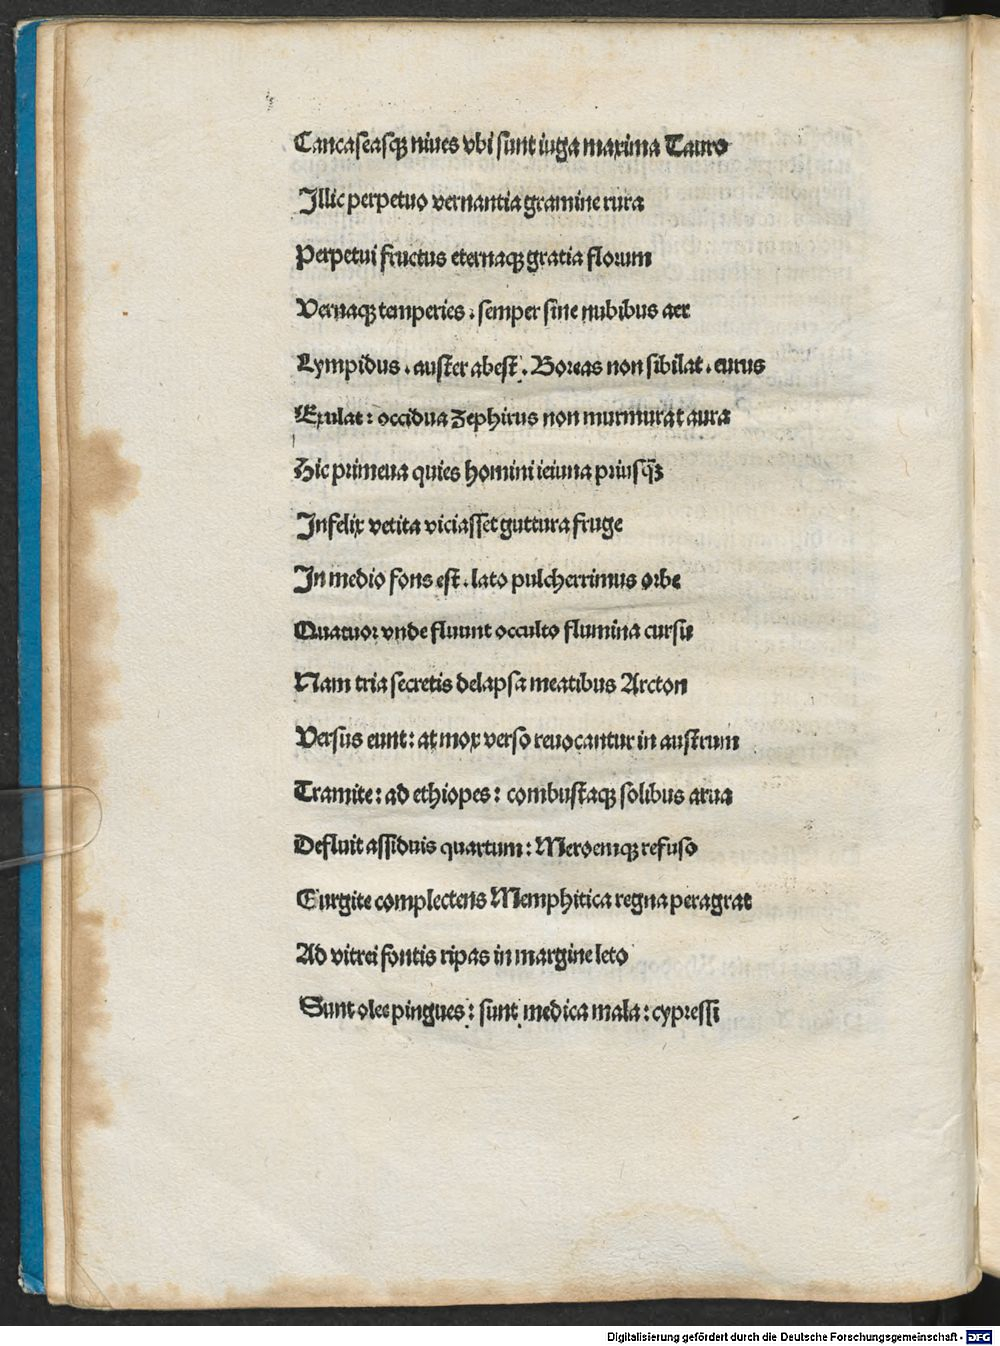 Cancaseasqꝫ niues vbi sunt iuga maxima Tauro
Illic perpetuo vernantia gramine rura
Perpetui fructus eternaqꝫ gratia florum
Vernaqꝫ temperies . semper sine nubibus aer
Lympidus . auster abest . Boreas non sibilat . eurus
Exulat : occidua Zephirus non murmurat aura
Hic primeua quies homini ieiuna priusqꝫ̃
Infelix vetita viciasset guttura fruge
In medio fons est . lato pulcherrimus orbe
Quatuor vnde fluunt occulto flumina cursu
Nam tria secretis delapsa meatibus Arcton
Versus eunt : at mox verso reuocantur in austrum
Tramite : ad ethiopes : combustaqꝫ solibus arua
Defluit assiduis quartum : Meroemqꝫ refuso
Gurgite complectens Memphitica regna peragrat
Ad vitrei fontis ripas in margine leto
Sunt olee pingues : sunt medica mala : cypressi
Digitalisierung gefördert durch die Deutsche Forschungsgemeinschaft - DFG